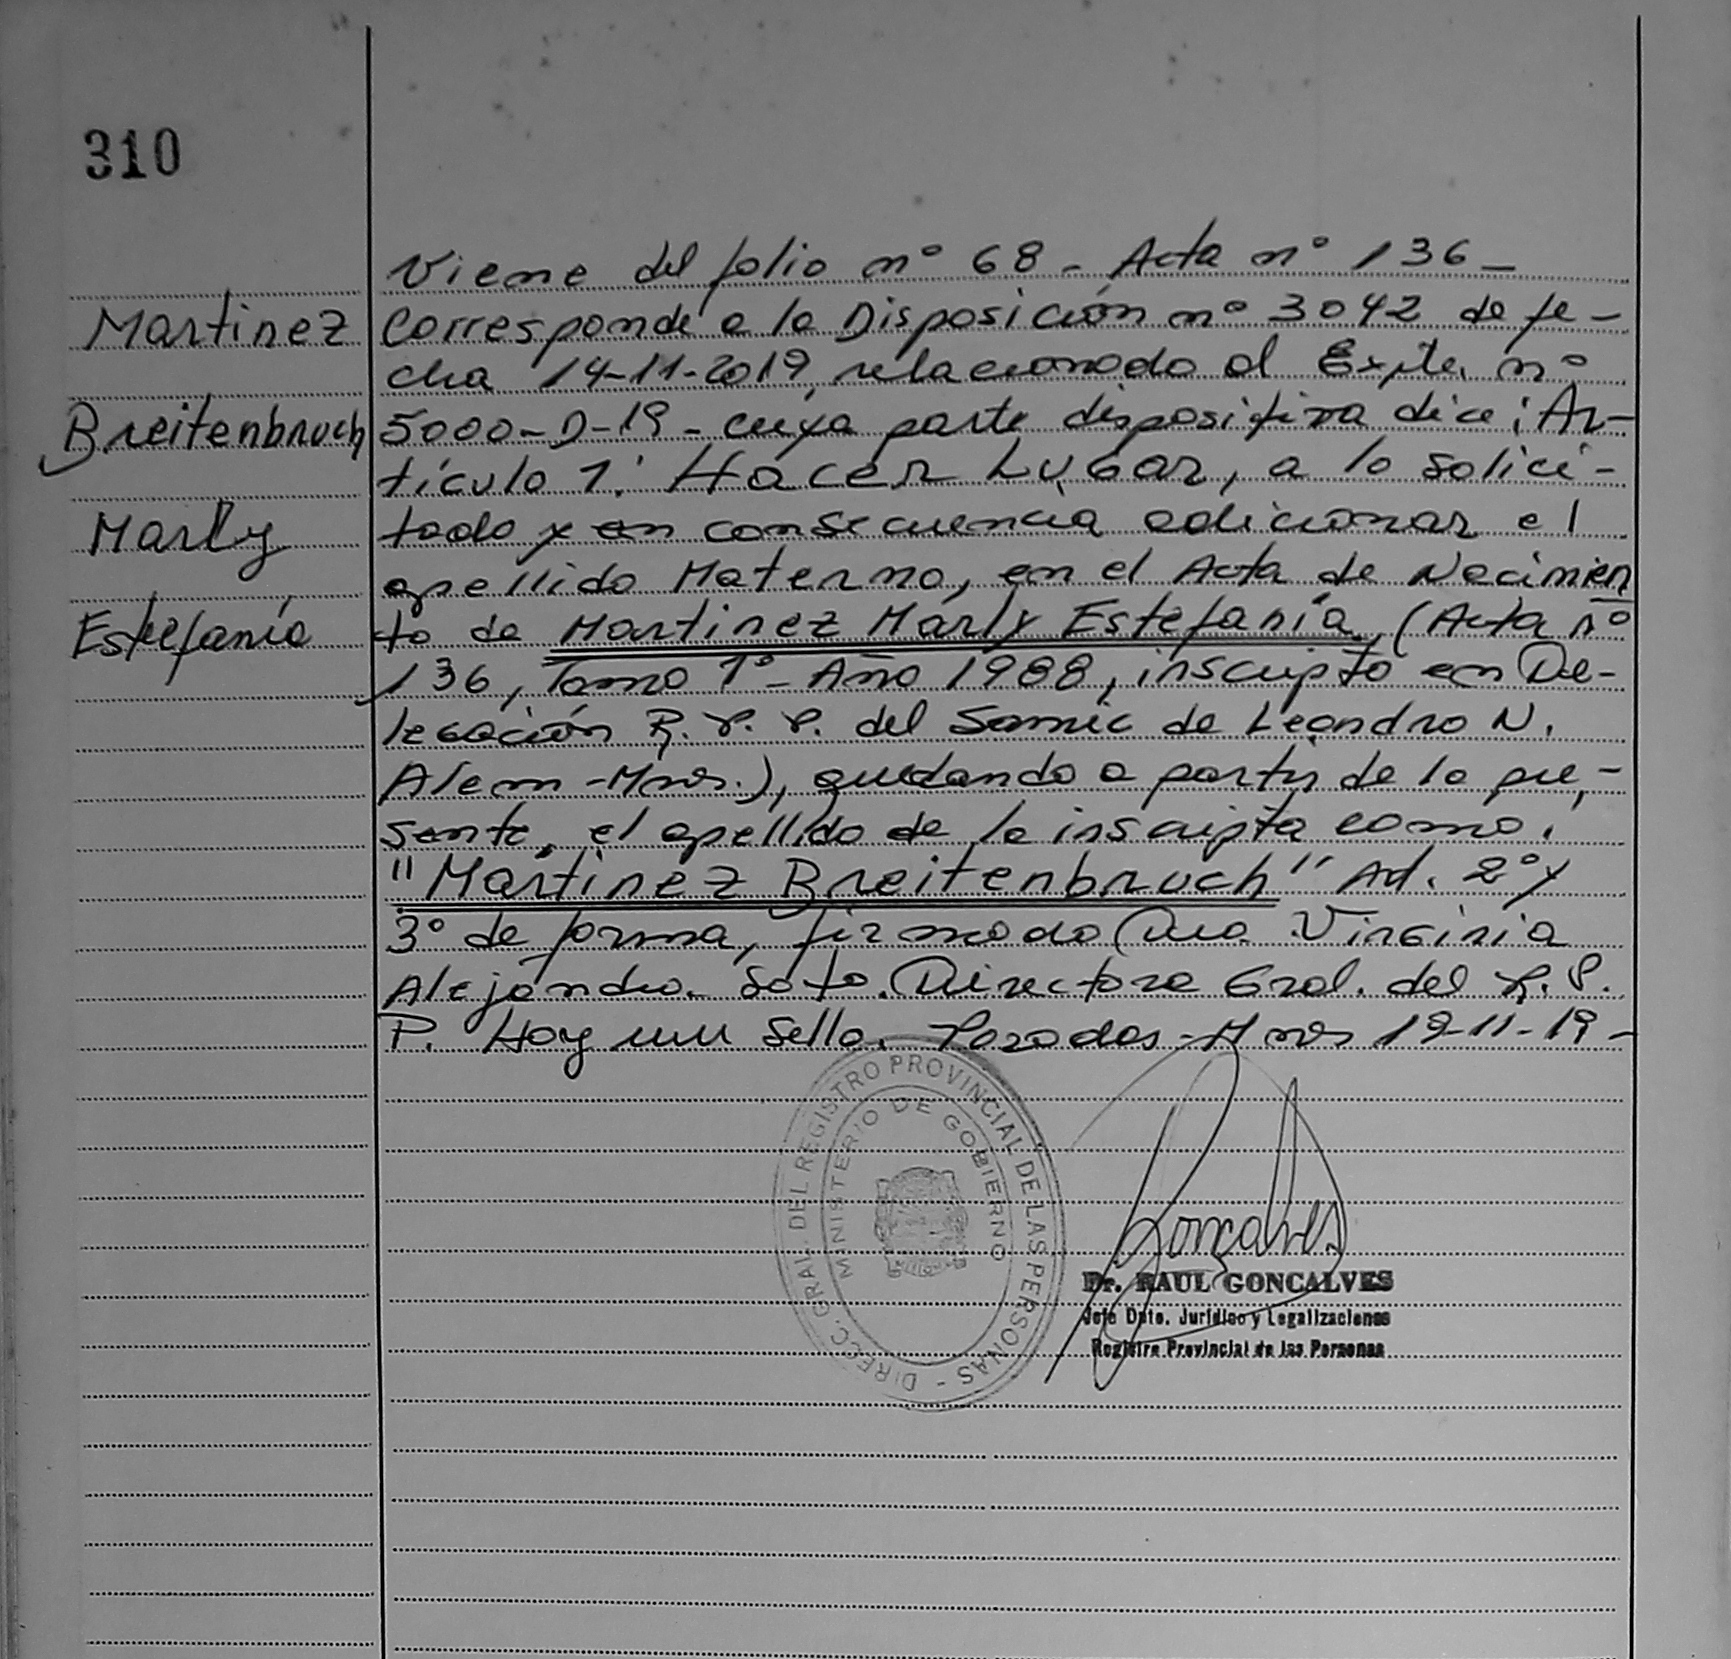 310
Martinez
Breitenbruch
Marly
Estefanía
Viene del folio nº 68 - Acta nº 136 -
Corresponde a la Disposición nº 3042 de fe-
cha 14-11-2019, relacionado al Expte. nº
5000-D-19 - cuya parte dispositiva dice: Ar-
tículo 1: HACER LUGAR, a lo solici-
tado y en consecuencia adicionar el
apellido Materno, en el Acta de Nacimien
to de Martinez Marly Estefanía, (Acta nº
136, Tomo 1º - Año 1988, inscripto en De-
legación R. P. P. del Samic de Leandro N.
Alem - Mnes.), quedando a partir de la pre-
sente, el apellido de la inscripta como:
"Martinez Breitenbruch" Art. 2º y
3º de forma, firmado Dra. Virginia
Alejandra Soto. Directora Gral. del R. P.
P. Hay un Sello. Posadas - Mnes 19-11-19 -
DIRECC. GRAL. DEL REGISTRO PROVINCIAL DE LAS PERSONAS -
MINISTERIO DE GOBIERNO
Goncalves
Dr. RAUL GONCALVES
Jefe Dpto. Jurídico y Legalizaciones
Registro Provincial de las Personas